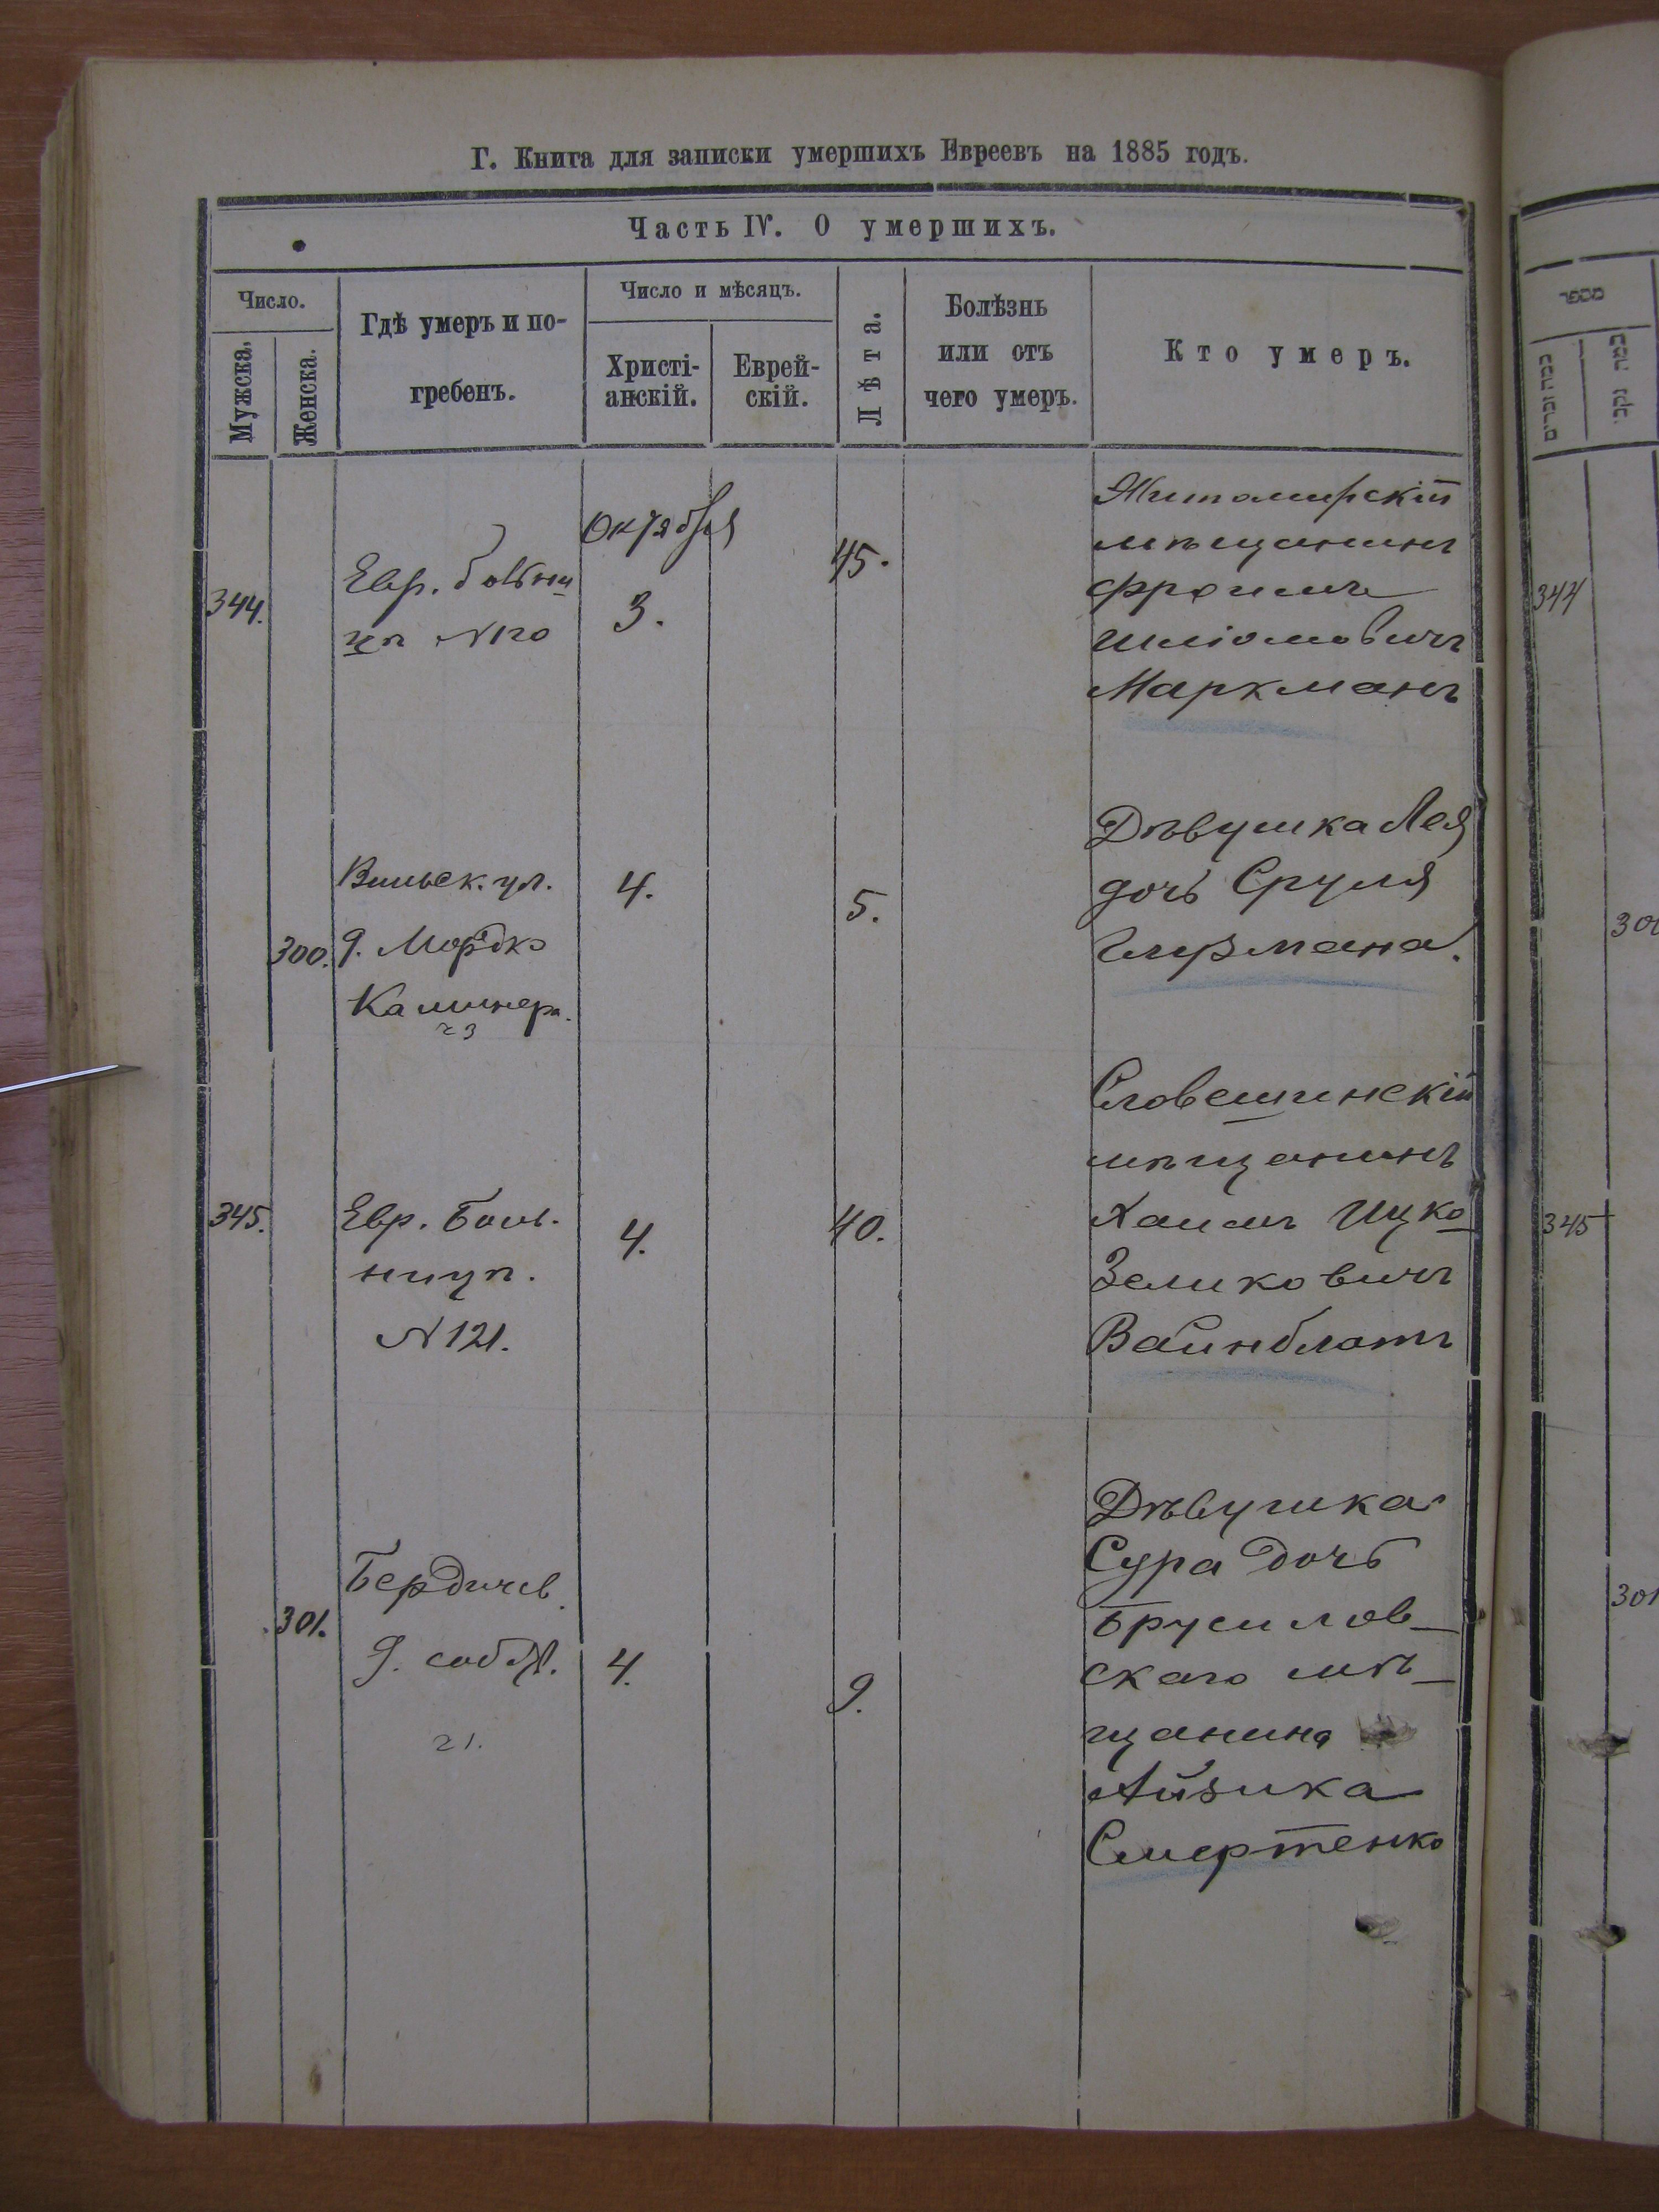 Г. Книга для записки умершихъ Евреевъ на 1885 годъ.
Часть IV. О умершихъ.
Число.
Мужска.
Женска.
Гдѣ умеръ и по-
гребенъ.
Число и мѣсяцъ.
Христі-
анскій.
Еврей-
скій.
Лѣта.
Болѣзнь
или отъ
чего умеръ.
Кто умеръ.
344.
Евр. больни
цѣ N 120
Октября
3.
45.
Житомирскій
мѣщанинъ
Фроимъ
Шліомовичъ
Маркманъ
344
300.
Вильск. ул.
д. Мордко
4.
5.
Дѣвушка Лея
дочь Сруля
300
345.
Евр. Боль.
ницѣ.
N 121.
4.
40.
Словешинскій
мѣщанинъ
Хаимъ Ицко
Зеликовичъ
Вайнблатъ
345
301.
Бердичев.
д. соб.
21.
4.
9.
Дѣвушка
Сура дочь
Брусилов-
скаго мѣ-
щанина
Айзика
Смертенко
301